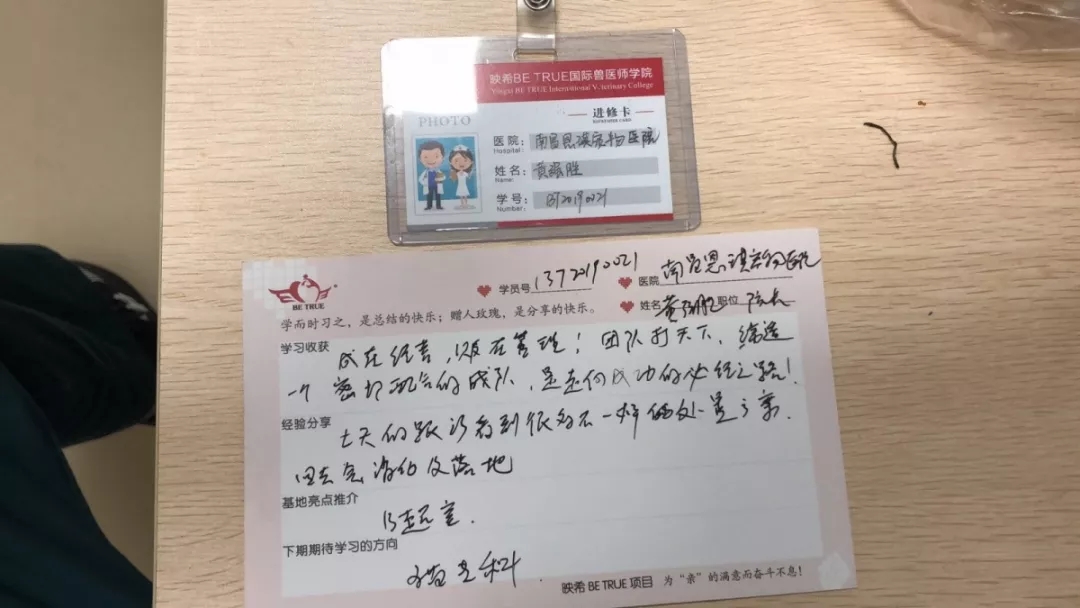 映希BE TRUE国际兽医师学院
Yingxi BE TRUE International Veterinary College
PHOTO
进修卡
医院: 南昌恩琪宠物医院
Hospital:
姓名: 黄
Name:
学号: 20190021
Number:
BE TRUE
学员号 13720190021
医院 南昌恩琪宠物医院
学而时习之,是总结的快乐;赠人玫瑰,是分享的快乐。
姓名 黄 职位 院长
学习收获
成在经营,败在管理!团队打天下,缔造
一个密切配合的战队,是走向成功的必经之路!
经验分享
七天的跟诊看到很多不一样的处置方案.
回去怎
落地
基地亮点推介
下期期待学习的方向
猫专科.
映希 BE TRUE 项目 为“亲”的满意而奋斗不息!